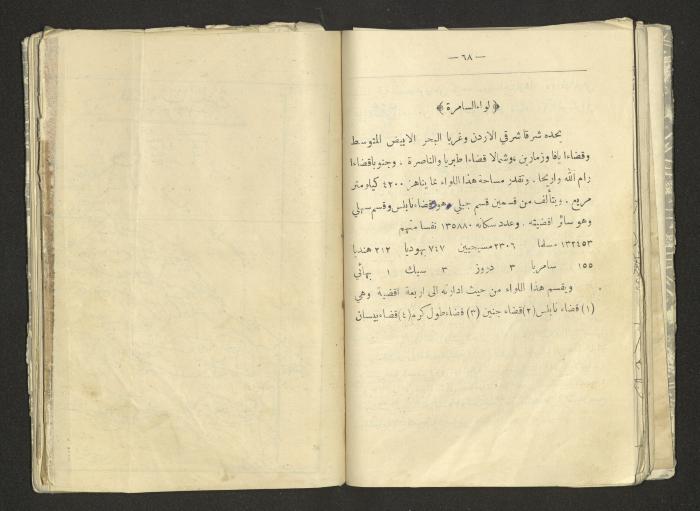 — ٦٨ —
﴿ لواء السامرة ﴾
يحده شرقا شرقي الاردن وغربا البحر الابيض المتوسط
وقضاءا يافا وزمارين، وشمالا قضاءا طبريا والناصرة ، وجنوبا قضاءا
رام الله واريحا . وتقدر مساحة هذا اللواء بما يناهز ٤٢٠٠ كيلومتر
مربع . ويتألف من قسمين قسم جبلي وهو قضاء نابلس وقسم سهلي
وهو سائر اقضيته . وعدد سكانه ١٣٥٨٨٠ نفسا منهم
١٣٢٤٥٣ مسلما ٢٣٠٦ مسيحيين ٧٤٧ يهوديا ٢١٢ هنديا
١٥٥ سامريا ٣ دروز ٣ سيك ١ بهائي
ويقسم هذا اللواء من حيث ادارته الى اربعة اقضية وهي
(١) قضاء نابلس (٢) قضاء جنين (٣) قضاء طول كرم (٤) قضاء بيسان